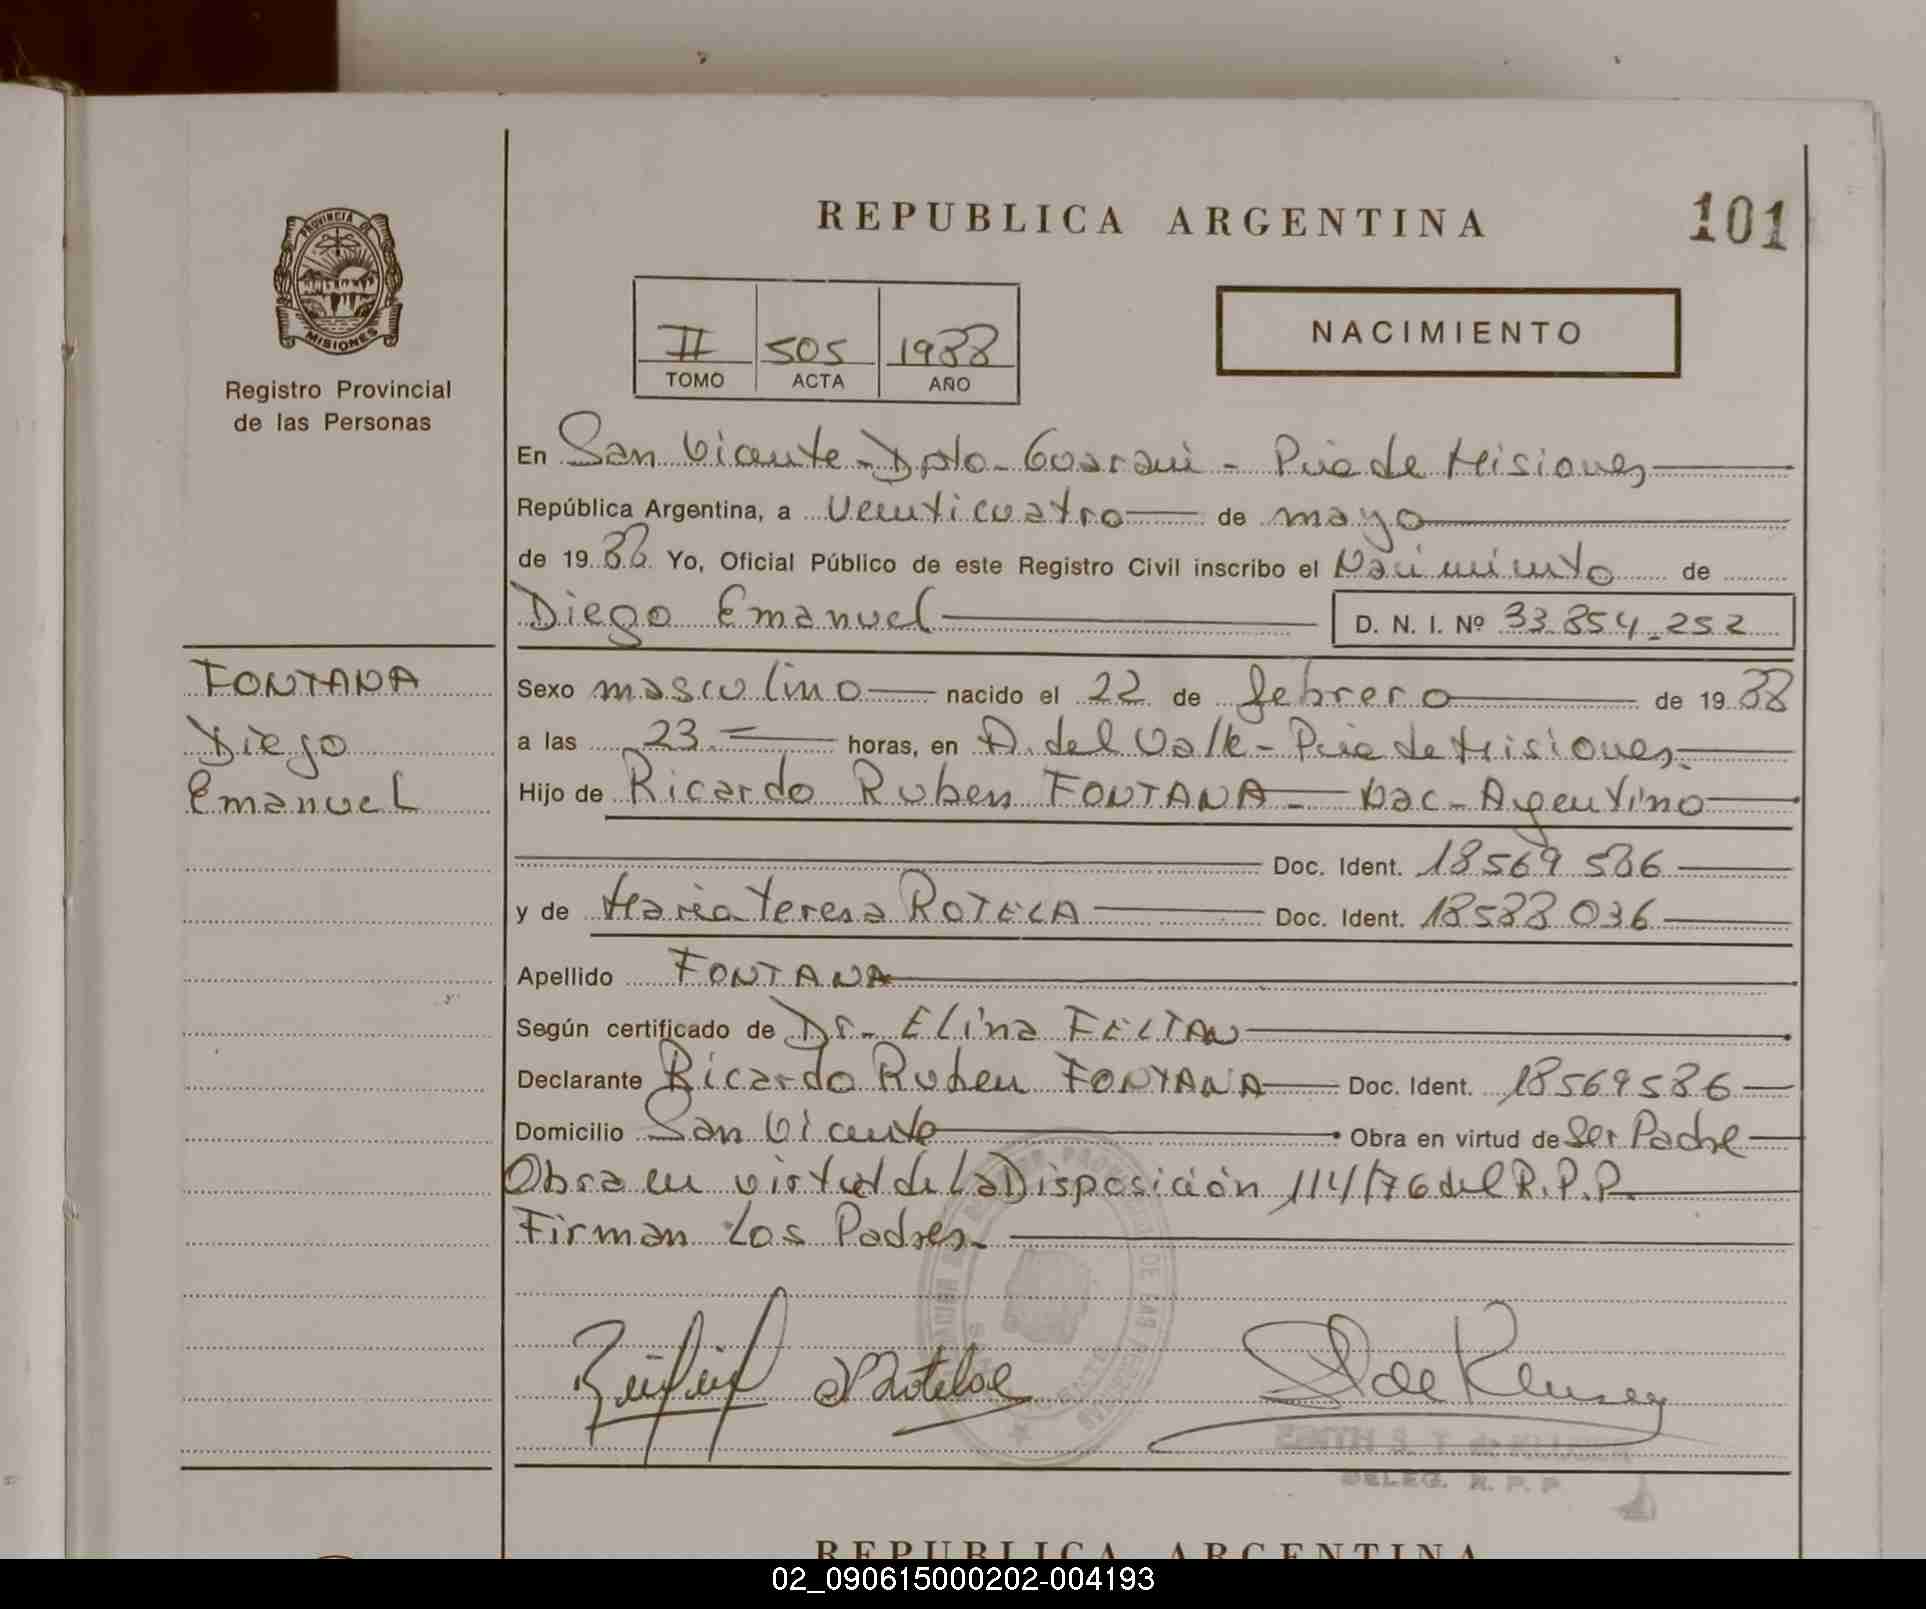 PROVINCIA DE
MISIONES
Registro Provincial
de las Personas
REPUBLICA ARGENTINA
101
II 505 1988
TOMO ACTA AÑO
NACIMIENTO
En San Vicente - Dpto - Guaraní - Pcia de Misiones
República Argentina, a Veinticuatro de mayo
de 1988 Yo, Oficial Público de este Registro Civil inscribo el Nacimiento de
Diego Emanuel D. N. I. Nº 33.854.252
FONTANA
Diego
Emanuel
Sexo masculino nacido el 22 de febrero de 1988
a las 23 horas, en A. del Valle - Pcia de Misiones.
Hijo de Ricardo Ruben FONTANA - Nac - Argentino
Doc. Ident. 18569 586
y de Maria Teresa ROTELA Doc. Ident. 18588 036
Apellido FONTANA
Según certificado de Dr. Elina FELTAN
Declarante Ricardo Ruben FONTANA Doc. Ident. 18569586
Domicilio San Vicente Obra en virtud de Ser Padre
Obra en virtud de la Disposición 114/76 del R.P.P.
Firman Los Padres.
DELEG. R. P. P.
REPUBLICA ARGENTINA
02_090615000202-004193